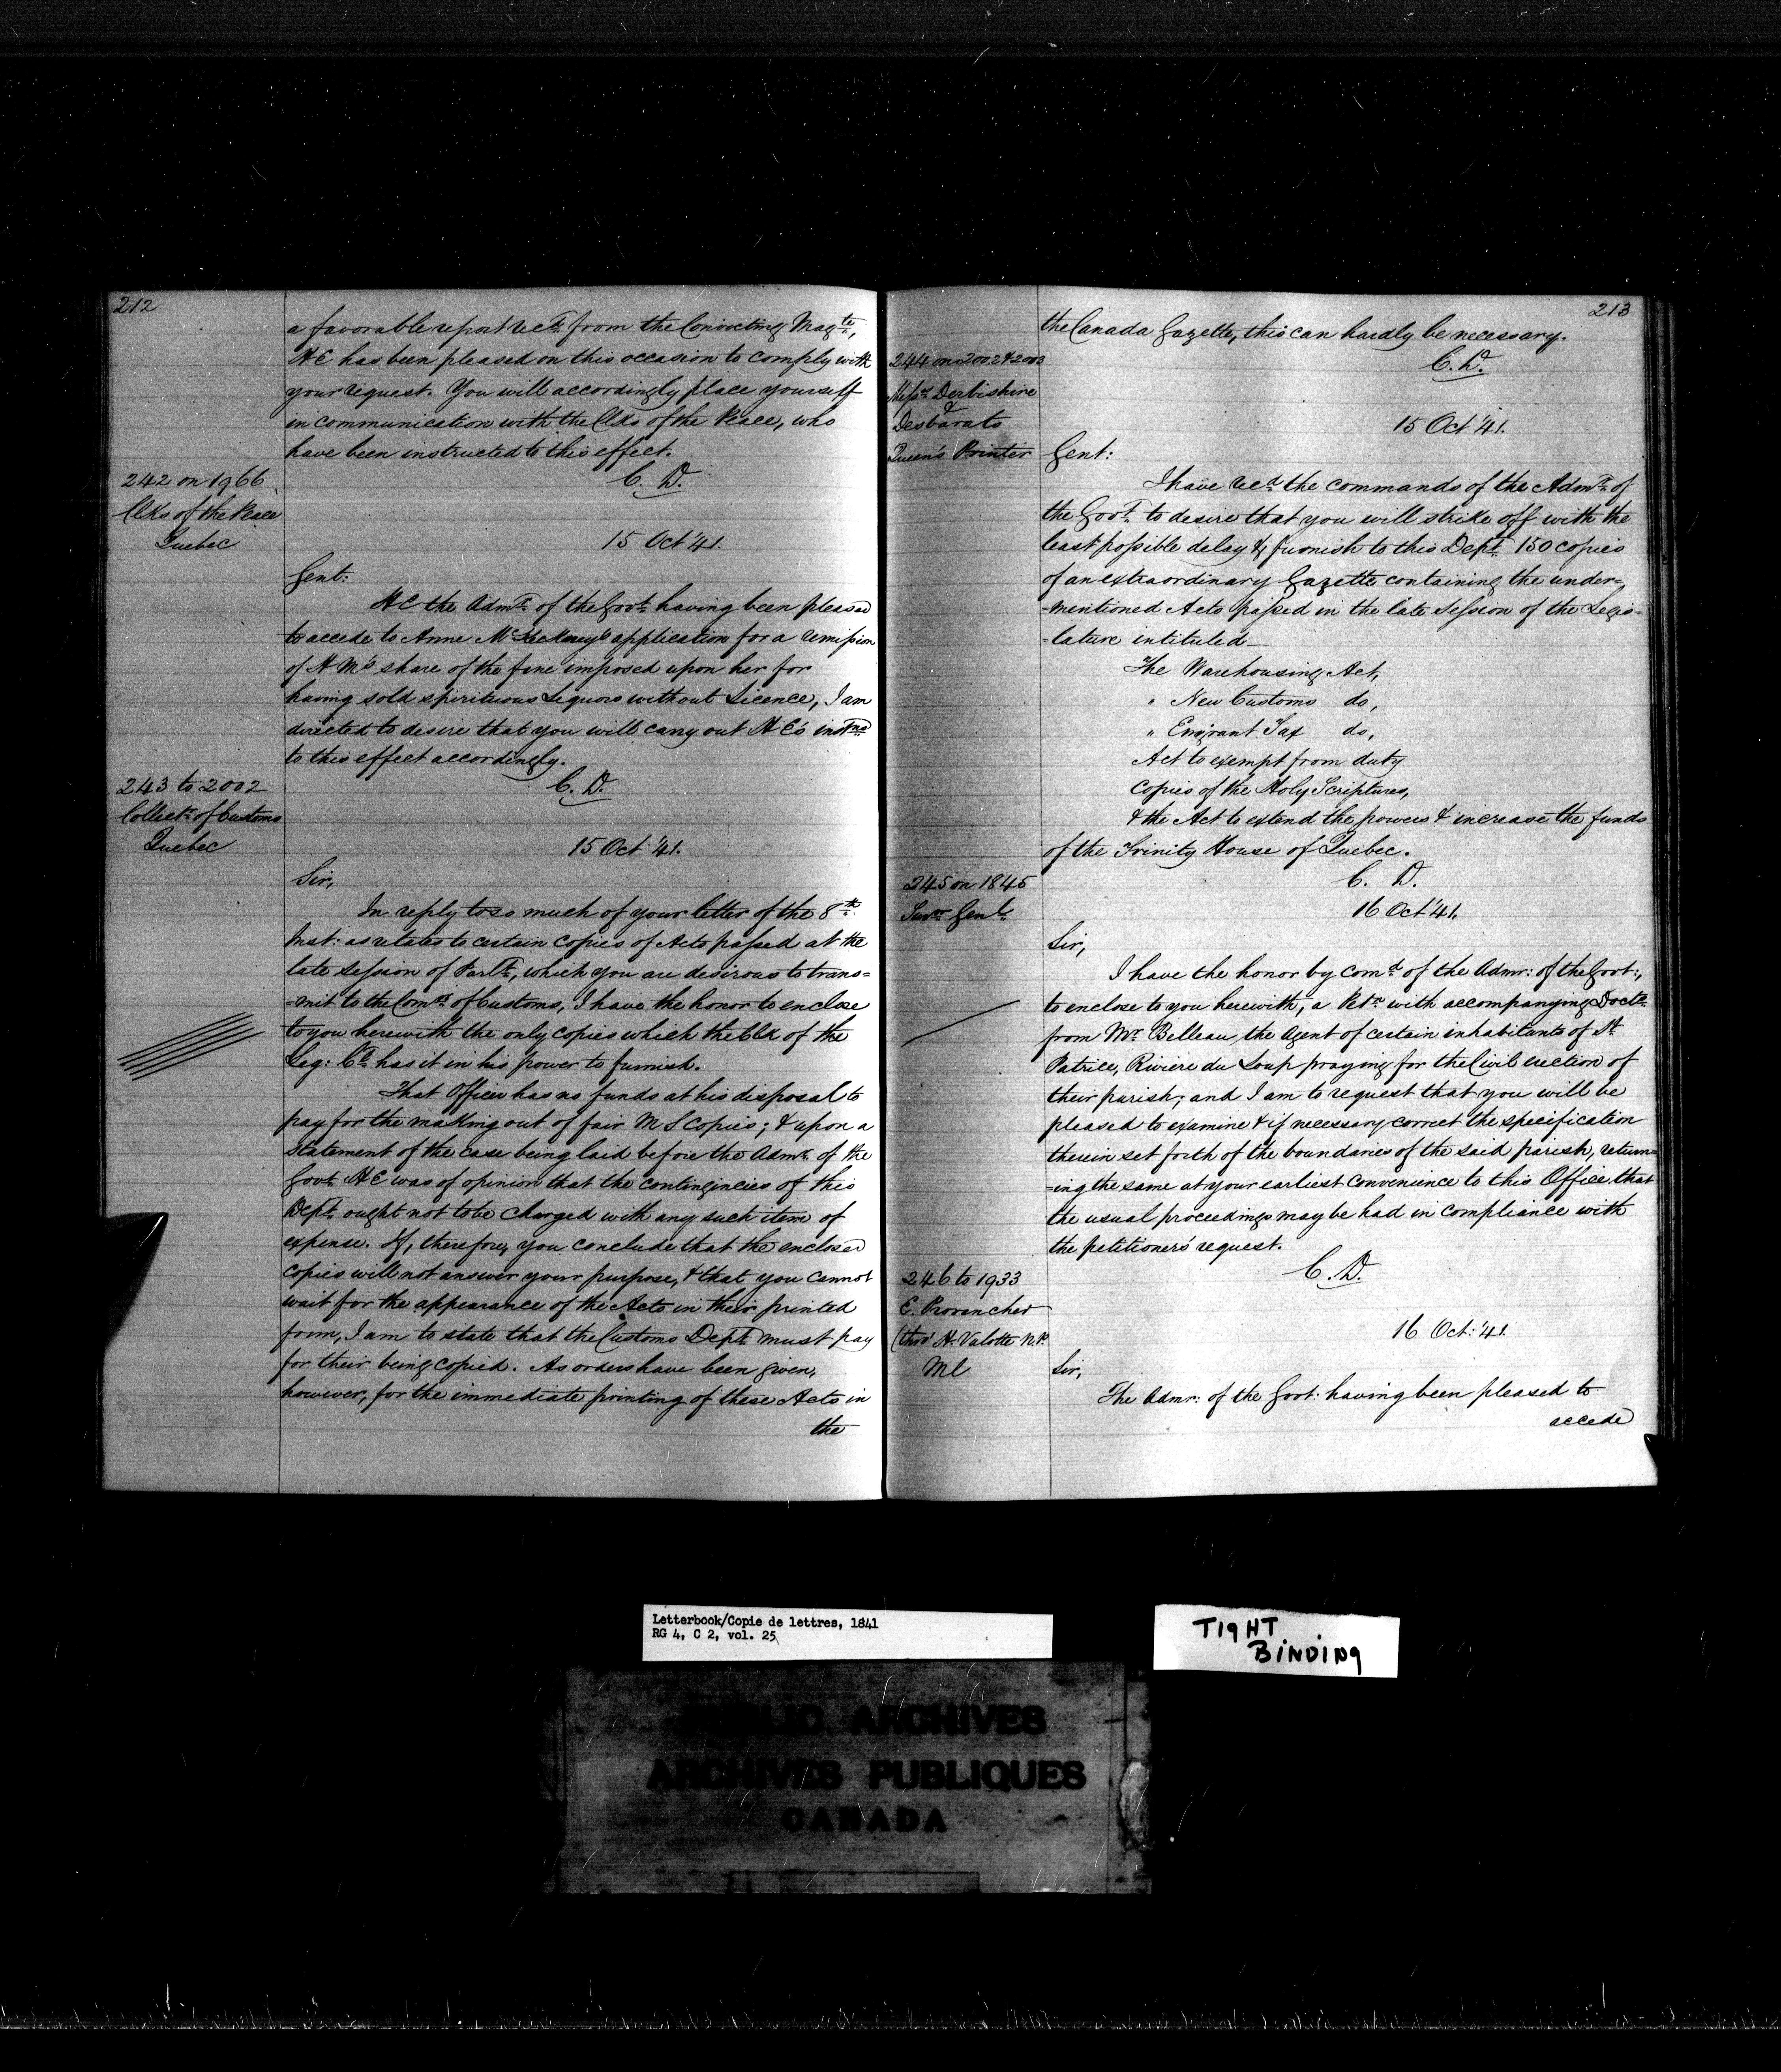 212
a favorable report recd. from the Convicting Magte,
H E has been pleased on this occasion to comply with
your request. You will accordingly place yourself
in communication with the Clks of the Peace, who
have been instructed to this effect.
C. D.
242 on 1966
Clks of the Peace
Quebec
15 Oct '41.
Gent:
H E the Admr. of the Govt. having been pleased
to accede to Anne application for a remission
of H M's share of the fine imposed upon her for
having sold spirituous Liquors without Licence, I am
directed to desire that you will carry out H E's instns
to this effect accordingly.
C. D.
243 to 2002
Collectr. of Customs
Quebec
15 Oct '41.
Sir,
In reply to so much of your letter of the 8th.
Inst: as relates to certain copies of Acts passed at the
late Session of Parlt., which you are desirous to trans=
=mit to the Comrs. of Customs, I have the honor to enclose
to you herewith the only copies which the Clk of the
Leg: Cl. has it in his power to furnish.
That Officer has no funds at his disposal to
pay for the making out of fair M S Copies; & upon a
statement of the case being laid before the Admr. of the
Govt. H E was of opinion that the contingencies of this
Dept. ought not to be charged with any such item of
expense. If, therefore, you conclude that the enclosed
copies will not answer your purpose, & that you cannot
wait for the appearance of the Acts in their printed
form, I am to state that the Customs Dept. must pay
for their being copied. As orders have been given,
however, for the immediate printing of these Acts in
the
213
the Canada Gazette, this can hardly be necessary.
C. D.
244 on 2002 & 2003
Messrs. Derbishire
&
Desbarats
Queen's Printer
15 Oct '41.
Gent:
I have recd. the commands of the Admr. of
the Govt. to desire that you will strike off with the
least possible delay & furnish to this Dept. 150 copies
of an extraordinary Gazette containing the under=
=mentioned Acts passed in the late Session of the Legis=
=lature intituled_
The Warehousing Act,
" New Customs do,
" Emigrant Tax do,
Act to exempt from duty
Copies of the Holy Scriptures,
& the Act to extend the powers & increase the funds
of the Trinity House of Quebec.
C. D.
245 on 1845
Survr. Genl.
16 Oct '41.
Sir,
I have the honor by comd. of the Admr: of the Govt:,
to enclose to you herewith, a Petn. with accompanying Docts.
from Mr. Belleau, the Agent of certain inhabitants of St.
Patrice, Rivière du Loup praying for the Civil erection of
their parish; and I am to request that you will be
pleased to examine & if necessary correct the specification
therein set forth of the boundaries of the said parish, return=
=ing the same at your earliest convenience to this Office, that
the usual proceedings may be had in compliance with
the petitioners' request.
C. D.
246 to 1933
E. Provencher
(thro' H. Valotte N.P.
Ml
16 Oct: '41.
Sir,
The Admr: of the Govt: having been pleased to
accede
Letterbook/Copie de lettres, 1841
RG 4, C 2, vol. 25
TIGHT
BINDING
PUBLIC ARCHIVES
ARCHIVES PUBLIQUES
CANADA